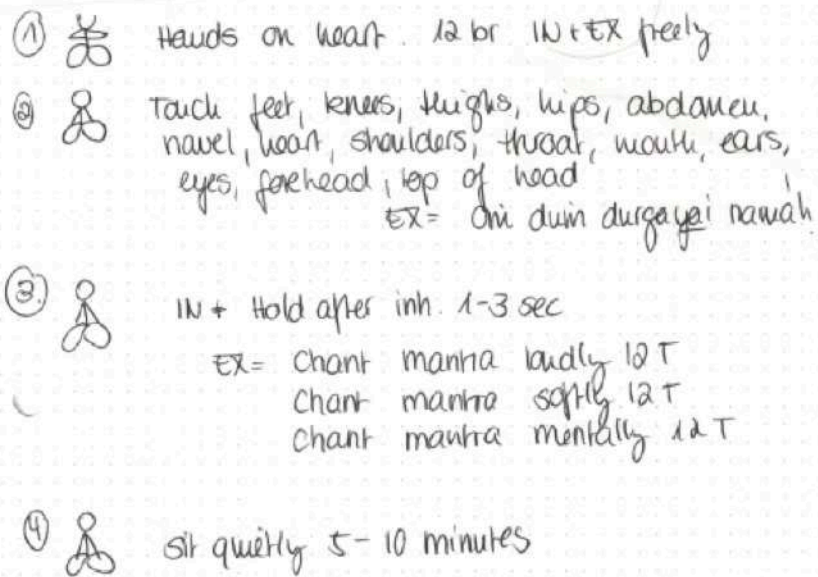 ① Hands on heart. 12 br IN + EX freely
② Touch feet, knees, thighs, hips, abdomen,
navel, heart, shoulders, throat, mouth, ears,
eyes, forehead, top of head
EX = Om dum durgayai namah
③ IN + Hold after inh. 1-3 sec
EX = Chant mantra loudly 12 T
Chant mantra softly 12 T
Chant mantra mentally 12 T
④ Sit quietly 5-10 minutes